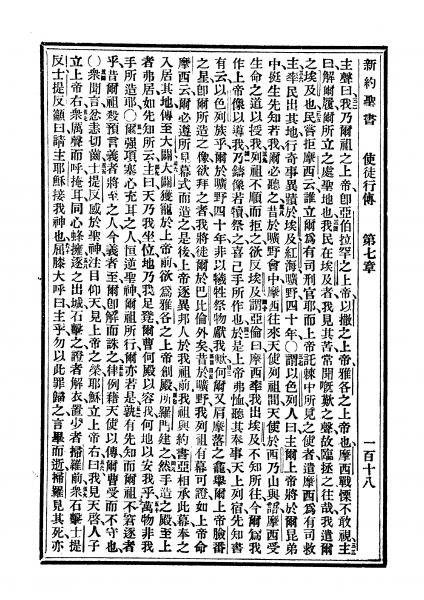 新約聖書 使徒行傳 第七章 一百十八
主聲曰、我乃爾祖之上帝、卽亞伯拉罕之上帝、以撒之上帝、雅各之上帝也、摩西戰慄不敢視、主
曰、解爾履、爾所立之處、聖地也、我民在埃及者、我見其苦、常聞嘅歎之聲、故臨拯之、往哉、我遣爾
之埃及也、民嘗拒摩西云、誰立爾爲有司刑官耶、而上帝託棘中所見之使者、遣摩西爲有司救
主、率民出其地、行奇事異蹟於埃及紅海曠野四十年、〇謂以色列人曰、主爾上帝、將於爾昆弟
中、挺生先知若我、爾必聽之、昔於曠野會中、摩西往來天使列祖間、天使於西乃山與語、摩西受
生命之道、以授我、列祖不順而拒之、欲反埃及、謂亞倫曰、摩西率我出埃及、不知所往、今爾爲我
作上帝像以導我、乃鑄像若犢祭之、喜己手所作也、於是上帝弗恤、聽其奉事天上列宿、先知書
有云、以色列族乎、爾於曠野四十年、非以犧牲祭物獻我何、爾又肩摩落之龕、舉爾上帝臉番
之星、卽爾所造之像、欲拜之者、我將徙爾於巴比倫外矣、昔於曠野、我列祖有幕可證、如上帝命
摩西云、爾必遵所見幕式而造之、是後上帝逐異邦人於我祖前、我祖與約書亞相承此幕、奉之
入居其地、傳至大闢、大闢獲寵於上帝前、欲爲雅各之上帝創殿、所羅門建之、然手造之殿、至上
者弗居、如先知所云、主曰、天乃我坐位、地乃我足凳、爾曹何殿以容我、何地以安我乎、萬物非我
手所造耶、〇爾強項塞心充耳之人、恒逆聖神、爾祖所行、爾亦若是、就有先知而爾祖不窘逐者
乎、昔爾祖殺預言義者將至之人、今義者至、爾卽解而誅之、律例藉天使以傳、爾曹受而不守也、
〇衆聞言忿恚切齒、士提反感於聖神、注目仰天、見上帝之榮、耶穌立上帝右、曰、我見天啓、人子
立上帝右、衆厲聲而呼、掩耳、同心蜂擁、逐之出城、石擊之、證者解衣置少者掃羅前、衆石擊士提
反、士提反籲曰、請主耶穌接我神也、屈膝大呼曰、主乎、勿以此罪歸之、言畢而逝、掃羅見其死亦